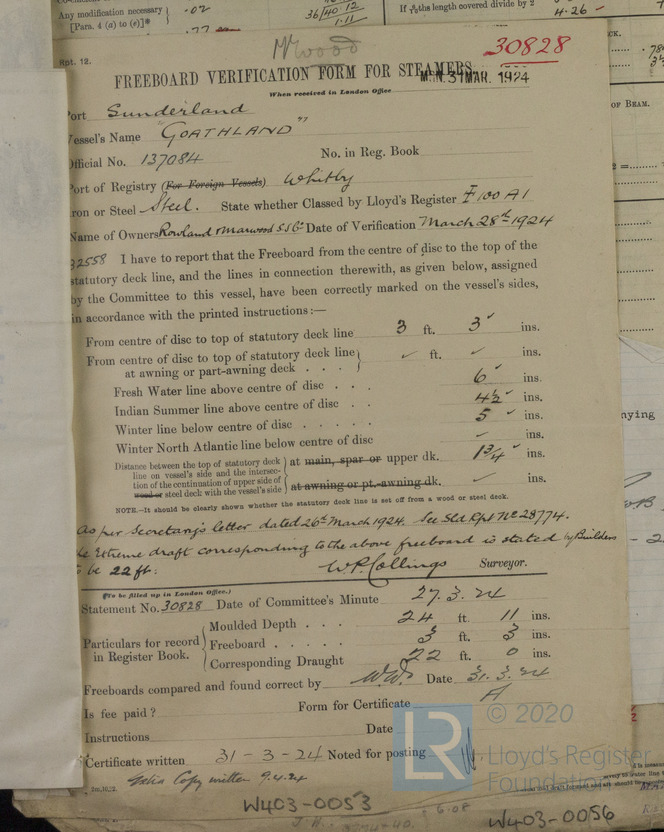 Any modification necessary
[Para. 4 (a) to (e)]*
.02
36/40.12
1.11
.77
If 7/10ths length covered divide by 2
4.26 -
Rot. 12.
Mr Wood
30828
FREEBOARD VERIFICATION FORM FOR STEAMERS.
When received in London Office
31 MAR. 1924
ort Sunderland
essel's Name "GOATHLAND"
fficial No. 137084 No. in Reg. Book
ort of Registry (For Foreign Vessels) Whitby
ron or Steel Steel. State whether Classed by Lloyd's Register 100 A1
Name of Owners Rowland & Marwood S.S. Co Date of Verification March 28th 1924
32558 I have to report that the Freeboard from the centre of disc to the top of the
statutory deck line, and the lines in connection therewith, as given below, assigned
by the Committee to this vessel, have been correctly marked on the vessel's sides,
in accordance with the printed instructions:—
From centre of disc to top of statutory deck line 3 ft. 3 ✓ ins.
From centre of disc to top of statutory deck line
at awning or part-awning deck . . . ✓ ft. ✓ ins.
Fresh Water line above centre of disc . . . 6 ✓ ins.
Indian Summer line above centre of disc . . 4½ ✓ ins.
Winter line below centre of disc . . . . . 5 ✓ ins.
Winter North Atlantic line below centre of disc ✓ ins.
Distance between the top of statutory deck
line on vessel's side and the intersec-
tion of the continuation of upper side of
wood or steel deck with the vessel's side
at main, spar or upper dk. 1¾ ✓ ins.
at awning or pt.-awning dk. ✓ ins.
NOTE.—It should be clearly shown whether the statutory deck line is set off from a wood or steel deck.
As per Secretary's letter dated 26th March 1924. See Sld Rpt No 28774.
e Extreme draft corresponding to the above freeboard is stated by Builders
be 22 ft:
W.P. Collings Surveyor.
(To be filled up in London Office.)
Statement No. 30828 Date of Committee's Minute 27.3.24
Particulars for record
in Register Book.
Moulded Depth . . . 24 ft. 11 ins.
Freeboard . . . . . 3 ft. 3 ins.
Corresponding Draught 22 ft. 0 ins.
Freeboards compared and found correct by W.W. Date 31.3.24
Is fee paid? Form for Certificate A
Instructions Date
Certificate written 31-3-24 Noted for posting
Extra Copy written 9.4.24
W403-0053
W403-0056
6.08
OF BEAM.
nying
© 2020
LR
Lloyd's Register
Foundation